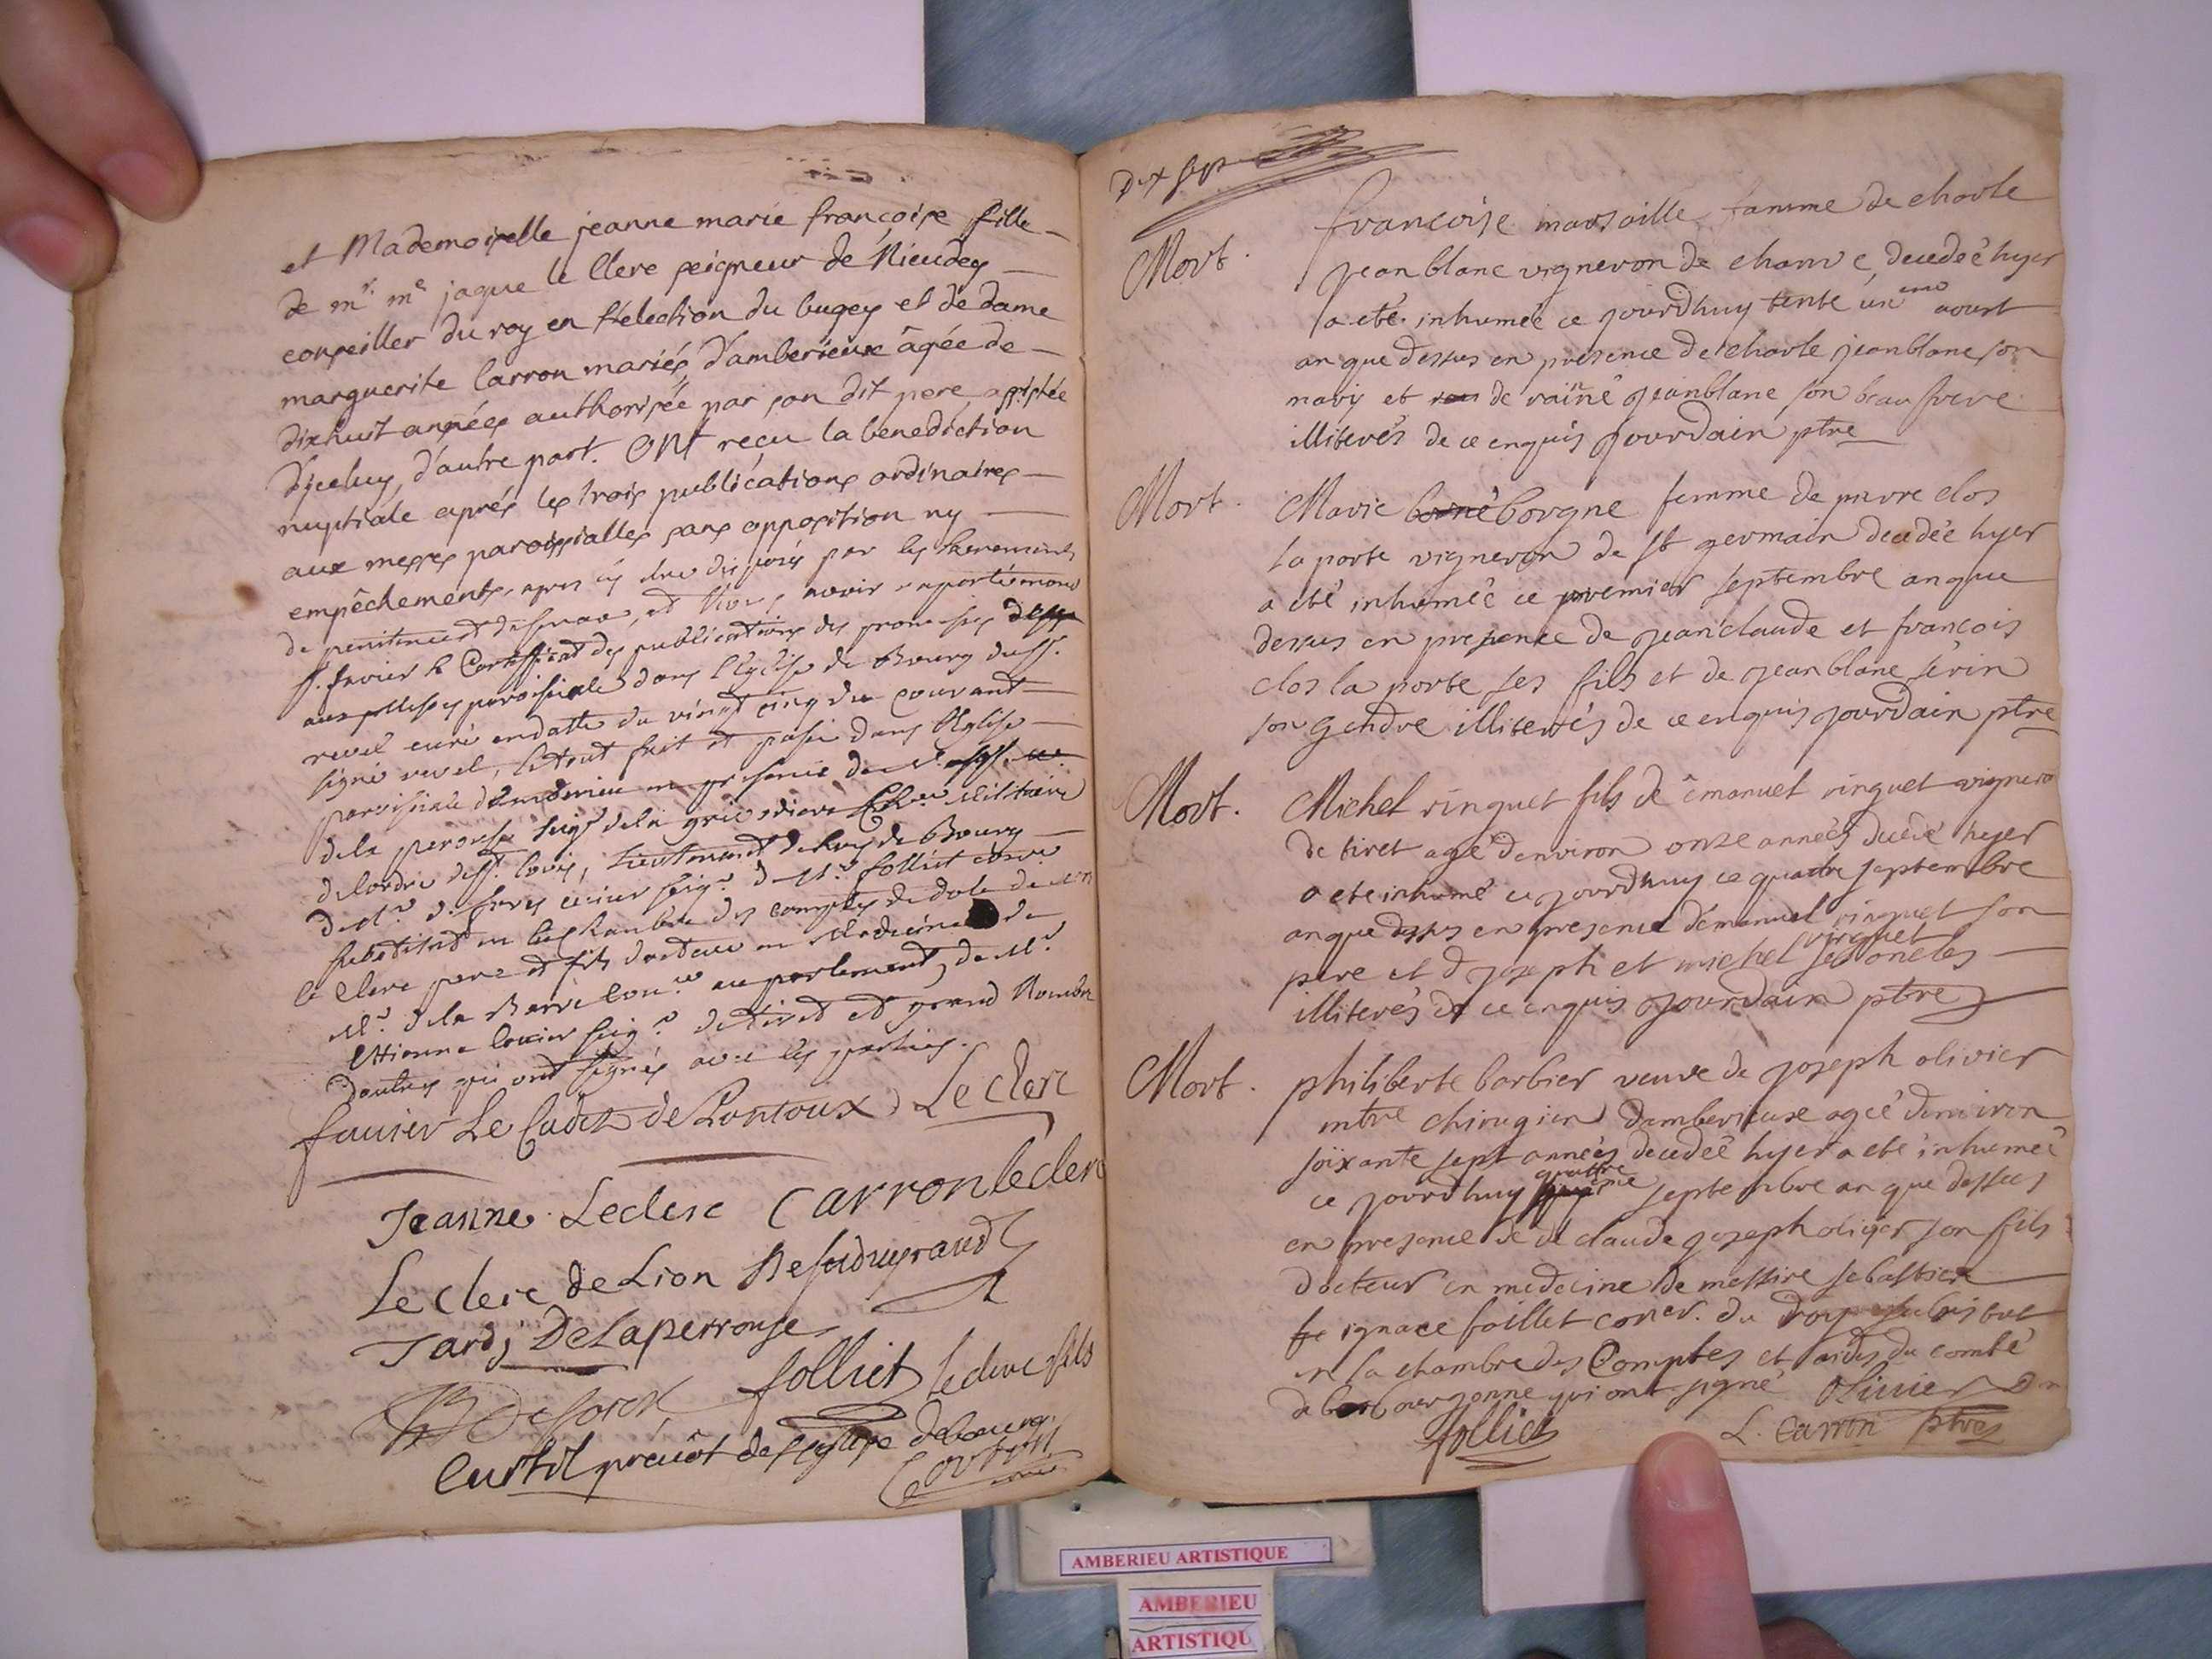 et Mademoiselle jeanne marie françoise fille
de mr. me jaque le Clerc seigneur de Rieudey
conseiller du roy en l'élection du bugey et de dame
marguerite Carron mariés d'amberieux âgée de
dixhuit années authorisée par son dit pere, assistée
d'jceluy, d'autre part. ONt reçu la benediction
nuptiale aprés les trois publications ordinaires
aux messes paroissialles sans opposition ny
empêchements, apres
de penitence et
le Certifficat des publications des promesses
paroisiale dans l'Eglise de Bourg
revel curé en datte du vingt cinq du courant
signé revel, le tout fait et passé dans l'Eglise
paroisiale en presence de
de la perouse seigr de la militaire
de lordre de st. louis, Lieutenant de Roy de Bourg
de Mr. seigr. de Mr. folliet
substitud en la Chambre des comptes de dole de
le Clerc pere et fils docteur en Medecine de
Mr. de la au parlement, de Mr.
Ettienne seigr. de tiret et grand Nombre
dautres qui ont signés avec les parties.
fauier Le Cadet de Lontoux Le Clerc
Jeanne Leclerc Carron leclerc
Le clerc de Lion
Tardj De Laperrouse
folliet leclerc fils
Curtil preuôt de l'eglise de bourg
Dix sept
Mort. francoise marsaille famme de charle
jean blanc vigneron de chanve decedée hyer
a eté inhumée ce jourdhuy tente uneme aoust
an que dessus en presence de charle jeanblanc son
mary et de rainé jeanblanc son beau frere
illiterés de ce enquis Jourdain ptre
Mort. Marie borgne femme de pierre clos
la porte vigneron de st germain decedée hyer
a eté inhumée ce premier septembre an que
dessus en presence de jean claude et francois
clos la porte ses fils et de jean blanc sevin
son gendre illiterés de ce enquis jourdain ptre
Mort. Michel ringuet fils de emanuel ringuet vignero
de tiret agé denviron onze années decedé hyer
a ete inhumé ce jourdhuy ce quatre septembre
an que dessus en presence demanuel ringuet son
pere et d joseph et michel ringuet ses oncles
illiterés de ce enquis Jourdain ptre
Mort. philiberte barbier veuve de joseph olivier
mtre chirugien damberieux agée denviron
soixante sept années decedée hyer a eté inhumée
ce jourdhuy quattre septembre an que dessus
en presence de de claude joseph olivier son fils
docteur en medecine de messire sebastien
ignace folliet coner. du roy substitut
en la chambre des Comptes et aides du comté
de bourgonne qui ont signé Olivier
folliet L. Carron ptre
AMBERIEU ARTISTIQUE
AMBERIEU
ARTISTIQU